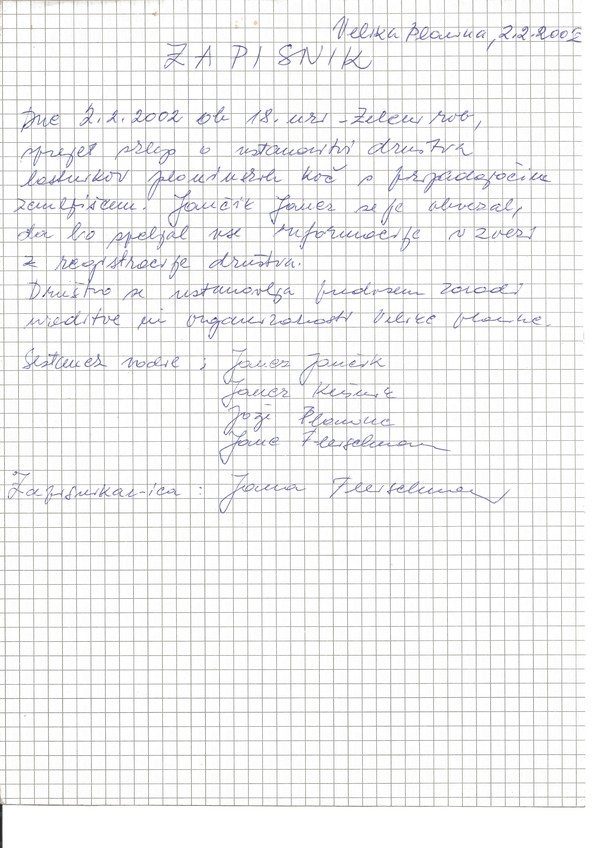 Velika Planina, 2.2.2002
ZAPISNIK
Dne 2.2.2002 ob 18. uri - Zeleni rob,
sprejet sklep o ustanovitvi društva
lastnikov planinskih koč s pripadajočim
zemljiščem. Jančik Janez se je obvezal,
da bo speljal vse informacije v zvezi
z registracije društva.
Društvo se ustanovlja predvsem zaradi
ureditve in organiziranosti Velike planine.
Sestanek vodie ; Janez Jančik
Janez
Jože Planinc
Jana Fleischman
Zapisnikar-ica : Jana Fleischman